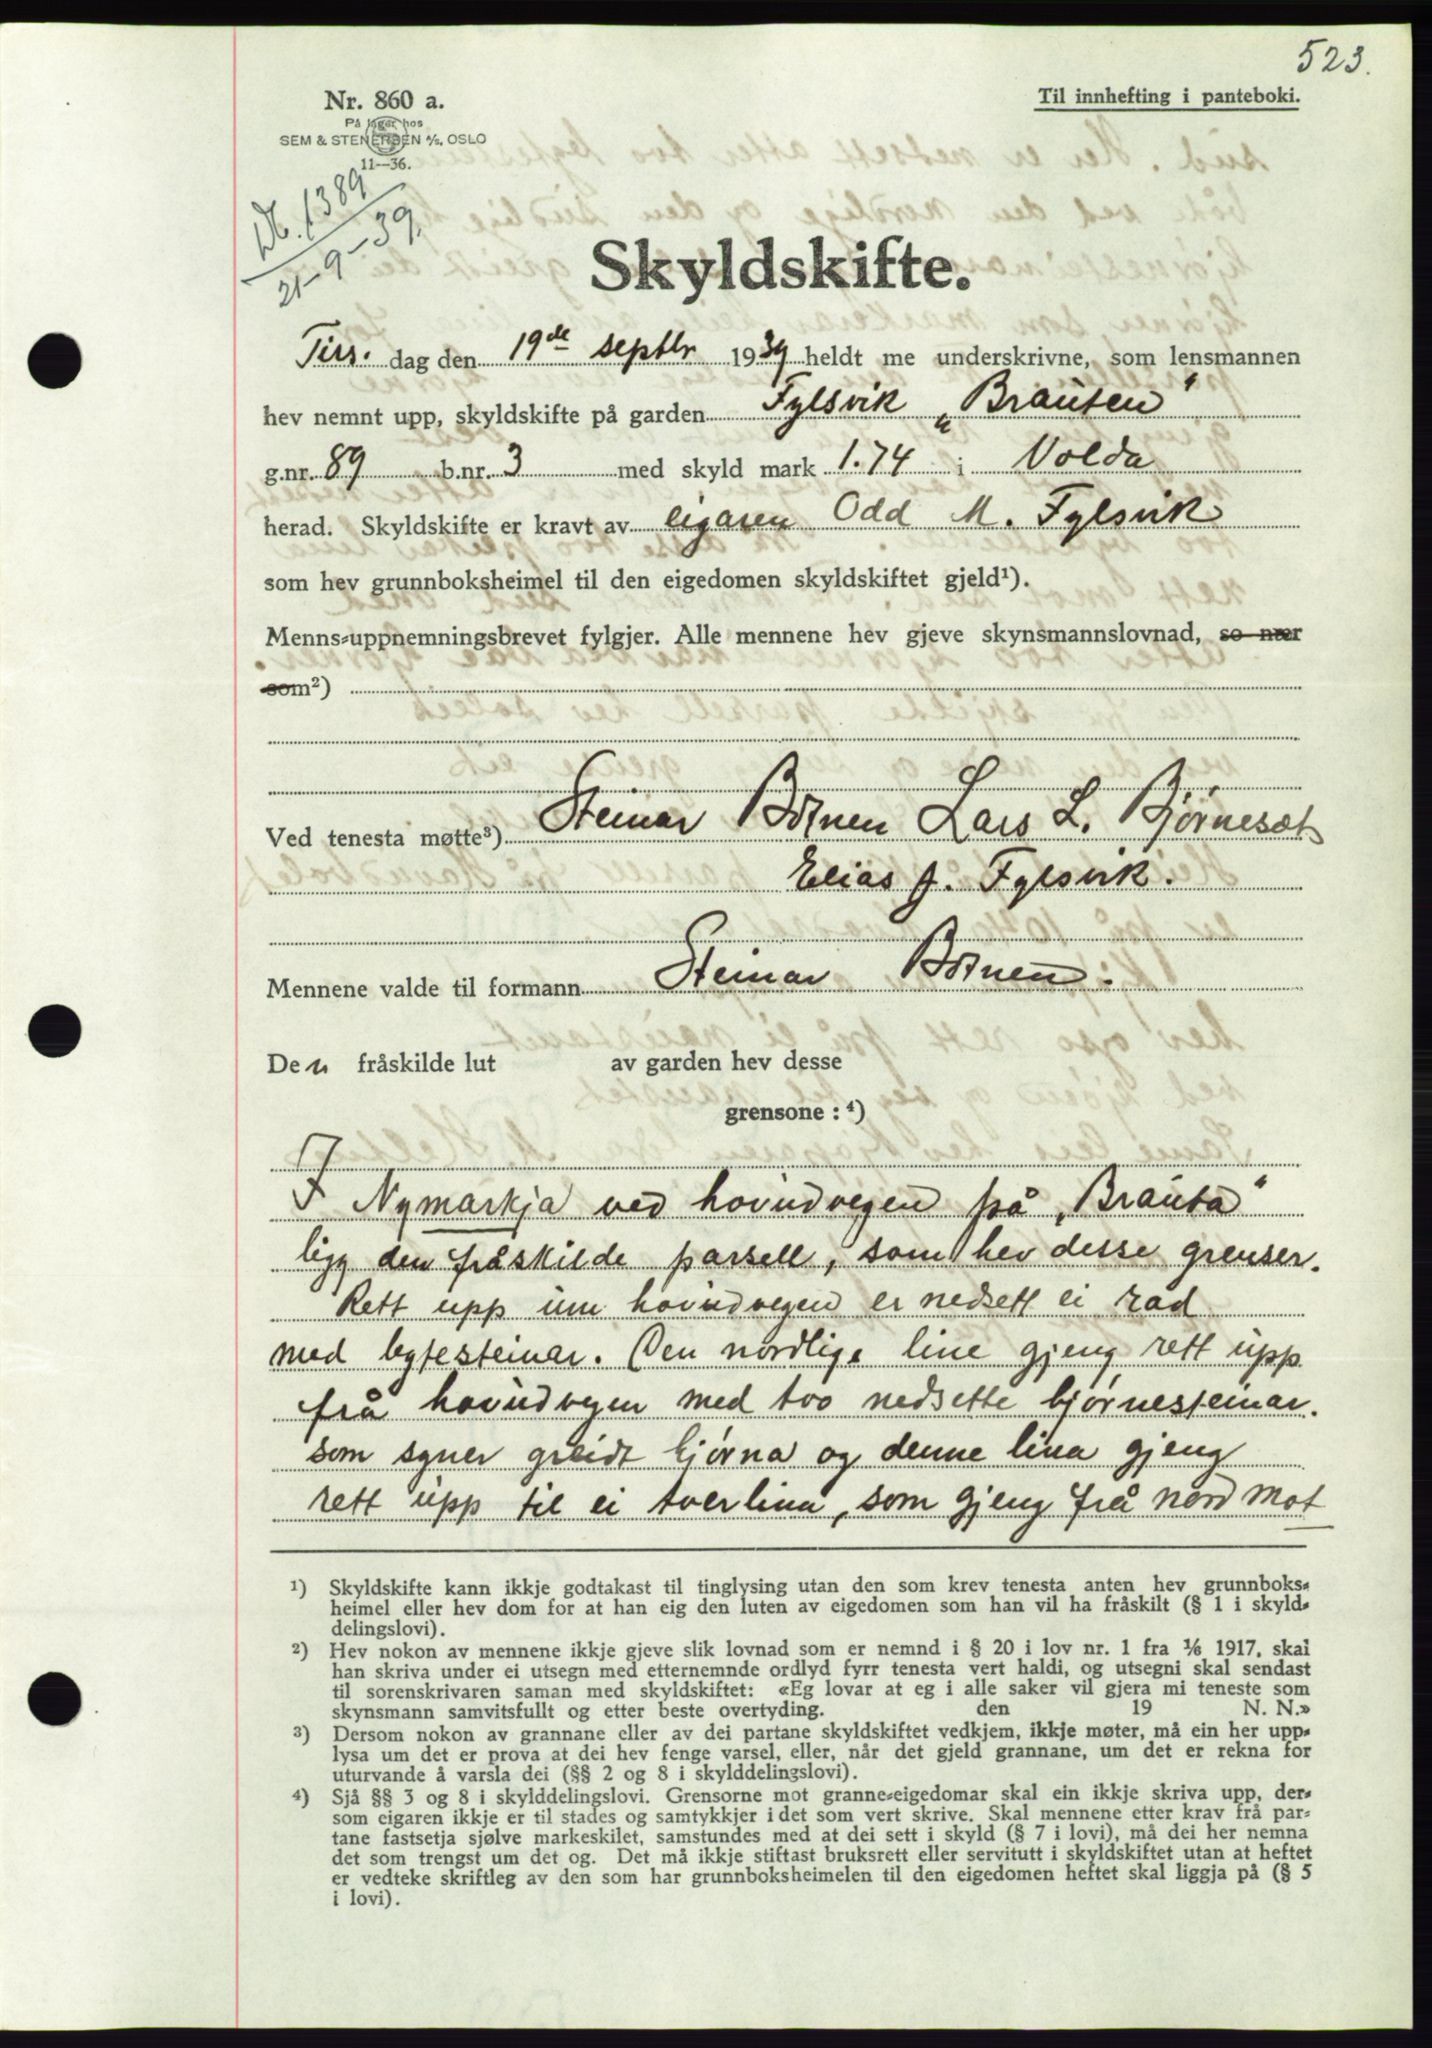 523.
Nr. 860 a.
Til innhefting i panteboki.
På lager hos
SEM & STENERSEN A/S, OSLO
11—36.
Db. 1389
21-9-39.
Skyldskifte.
Tirs. dag den 19de septbr 1939 heldt me underskrivne, som lensmannen
hev nemnt upp, skyldskifte på garden Fylsvik „Brauten"
g.nr. 89 b.nr. 3 med skyld mark 1.74 i Volda
herad. Skyldskifte er kravt av eigaren Odd M. Fylsvik
som hev grunnboksheimel til den eigedomen skyldskiftet gjeld¹).
Menns-uppnemningsbrevet fylgjer. Alle mennene hev gjeve skynsmannslovnad, so nær
som²)
Ved tenesta møtte³) Steinar Botnen Lars L. Bjørneset
Elias J. Fylsvik.
Mennene valde til formann Steinar Botnen.
Den fråskilde lut av garden hev desse
grensone : ⁴)
I Nymarkja ved hovudvegen på „Brauta"
ligg den fråskilde parsell, som hev desse grenser.
Rett upp um hovudvegen er nedsett ei rad
med bytesteinar. Den nordlige line gjeng rett upp
frå hovudvegen med two nedsette hjørnesteinar.
som syner greidt hjørna og denne lina gjeng
rett upp til ei tverlina, som gjeng frå nord mot
¹) Skyldskifte kann ikkje godtakast til tinglysing utan den som krev tenesta anten hev grunnboks-
heimel eller hev dom for at han eig den luten av eigedomen som han vil ha fråskilt (§ 1 i skyld-
delingslovi).
²) Hev nokon av mennene ikkje gjeve slik lovnad som er nemnd i § 20 i lov nr. 1 fra 1/6 1917, skal
han skriva under ei utsegn med etternemnde ordlyd fyrr tenesta vert haldi, og utsegni skal sendast
til sorenskrivaren saman med skyldskiftet: «Eg lovar at eg i alle saker vil gjera mi teneste som
skynsmann samvitsfullt og etter beste overtyding. den 19 N. N.»
³) Dersom nokon av grannane eller av dei partane skyldskiftet vedkjem, ikkje møter, må ein her upp-
lysa um det er prova at dei hev fenge varsel, eller, når det gjeld grannane, um det er rekna for
uturvande å varsla dei (§§ 2 og 8 i skylddelingslovi).
⁴) Sjå §§ 3 og 8 i skylddelingslovi. Grensorne mot granne-eigedomar skal ein ikkje skriva upp, der-
som eigaren ikkje er til stades og samtykkjer i det som vert skrive. Skal mennene etter krav frå par-
tane fastsetja sjølve markeskilet, samstundes med at dei sett i skyld (§ 7 i lovi), må dei her nemna
det som trengst um det og. Det må ikkje stiftast bruksrett eller servitutt i skyldskiftet utan at heftet
er vedteke skriftleg av den som har grunnboksheimelen til den eigedomen heftet skal liggja på (§ 5
i lovi).